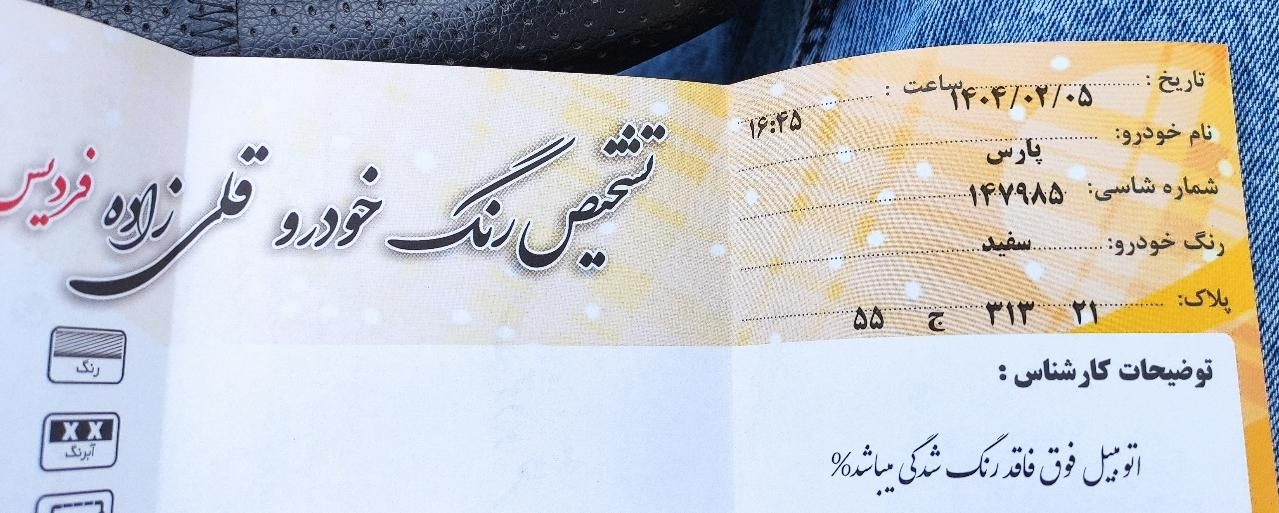 تاریخ : ۱۴۰۴/۰۲/۰۵ ساعت : ۱۶:۴۵
نام خودرو: پارس
شماره شاسی: ۱۴۷۹۸۵
رنگ خودرو: سفید
پلاک: ۲۱ ۳۱۳ ج ۵۵
تشخیص رنگ خودرو قلی زاده فردیس
توضیحات کارشناس :
اتومبیل فوق فاقد رنگ شدگی میباشد%
رنگ
X X
آبرنگ